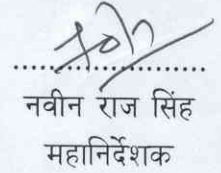 नवीन राज सिंह
महानिर्देशक